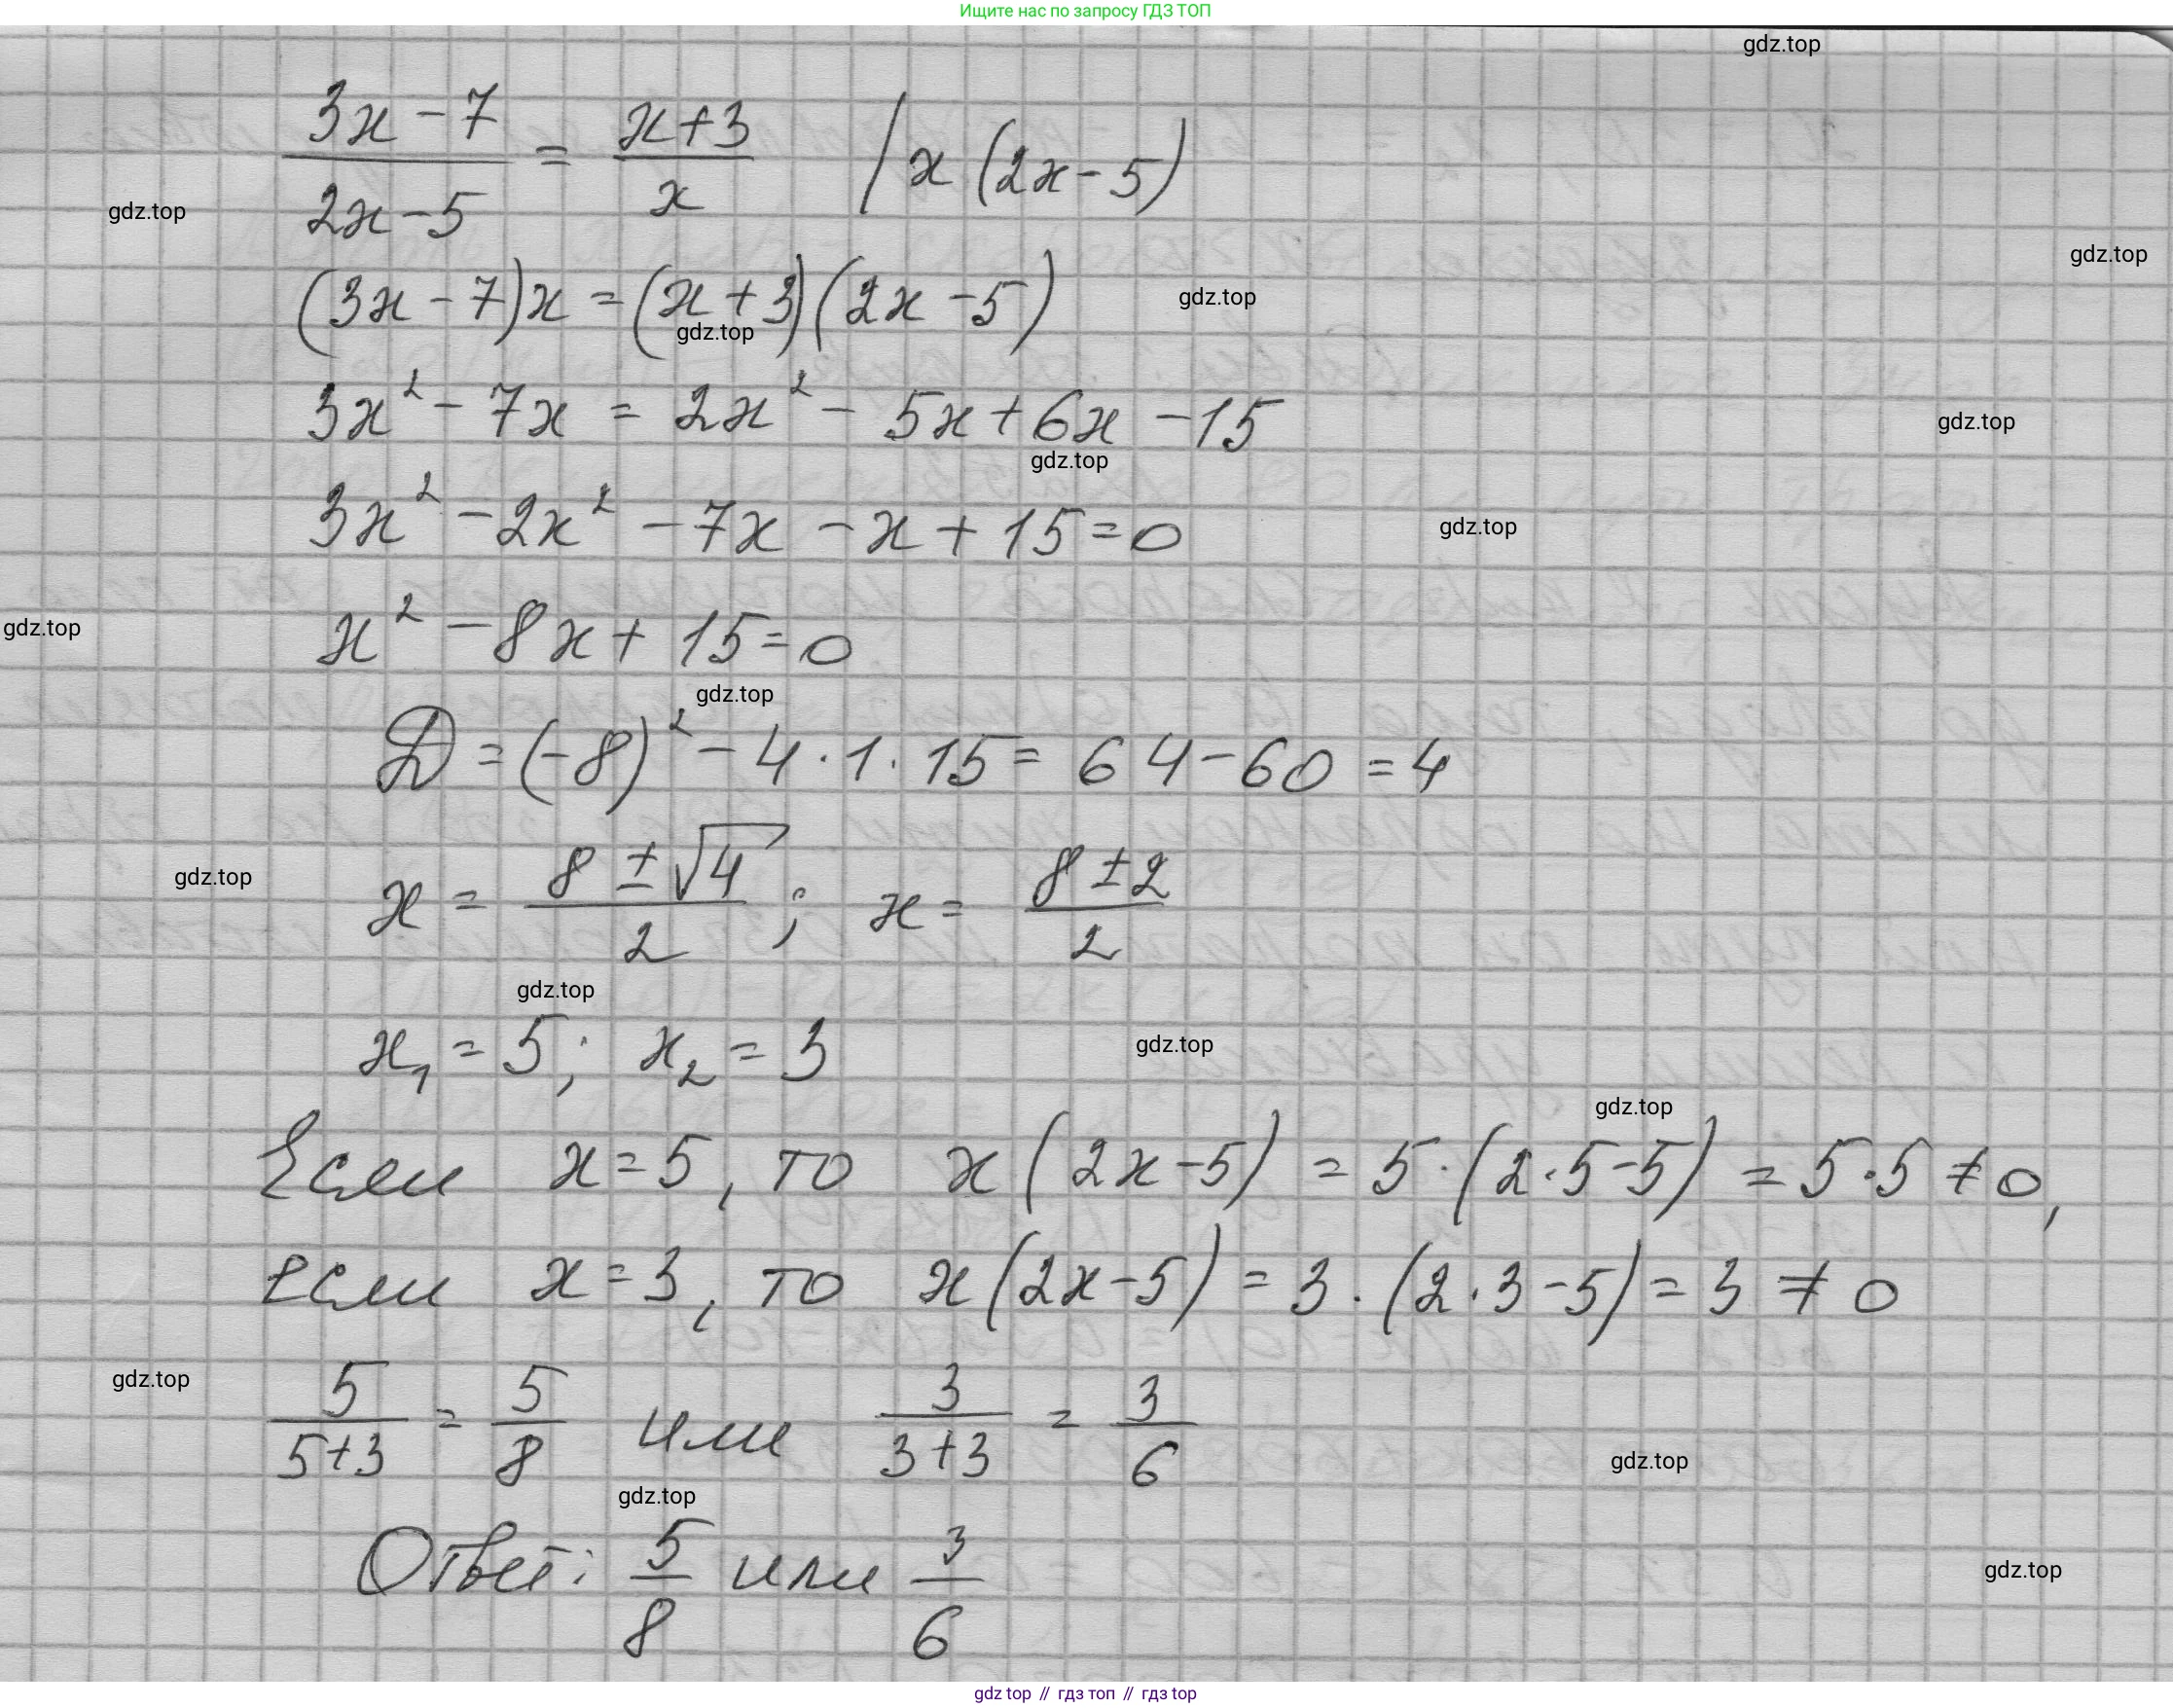 Ищите нас по запросу ГДЗ ТОП
gdz.top
(3x - 7)/(2x - 5) = (x + 3)/x | x (2x - 5)
gdz.top
gdz.top
(3x - 7)x = (x + 3)(2x - 5)
gdz.top
gdz.top
3x² - 7x = 2x² - 5x + 6x - 15
gdz.top
gdz.top
3x² - 2x² - 7x - x + 15 = 0
gdz.top
x² - 8x + 15 = 0
gdz.top
gdz.top
D = (-8)² - 4 · 1 · 15 = 64 - 60 = 4
x = (8 ± √4)/2 ; x = (8 ± 2)/2
gdz.top
gdz.top
x₁ = 5; x₂ = 3
gdz.top
gdz.top
Если x = 5, то x (2x - 5) = 5 · (2 · 5 - 5) = 5 · 5 ≠ 0,
если x = 3, то x (2x - 5) = 3 · (2 · 3 - 5) = 3 ≠ 0
gdz.top
5/(5+3) = 5/8 или 3/(3+3) = 3/6
gdz.top
gdz.top
Ответ: 5/8 или 3/6
gdz.top
gdz top // гдз топ // гдз top